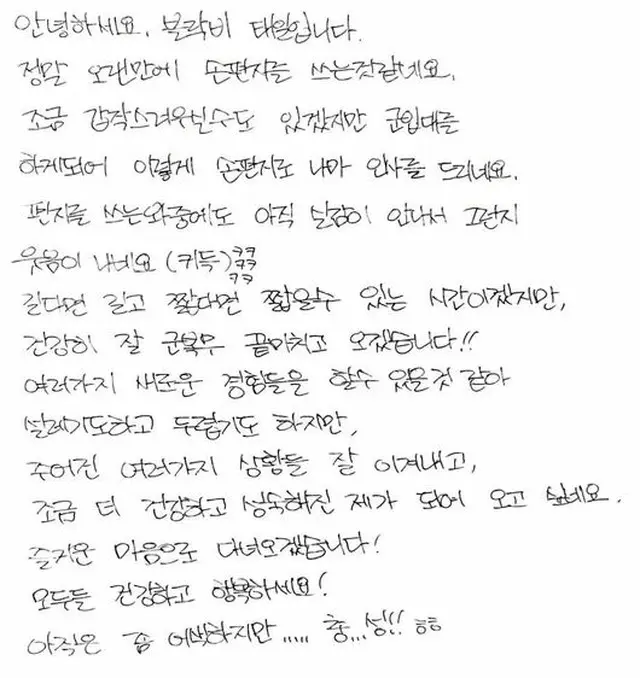 안녕하세요. 블락비 태일입니다.
정말 오랜만에 손편지를 쓰는것같네요.
조금 갑작스러우실수도 있겠지만 군입대를
하게되어 이렇게 손편지로 나마 인사를 드리네요.
편지를 쓰는와중에도 아직 실감이 안나서 그런지
웃음이 나네요 (키득) ㅋㅋ ㅋㅋ ㅋㅋ
길다면 길고 짧다면 짧을수 있는 시간이겠지만,
건강히 잘 군복무 끝마치고 오겠습니다!!
여러가지 새로운 경험들을 할수 있을것 같아
설레기도하고 두렵기도 하지만,
주어진 여러가지 상황들 잘 이겨내고,
조금 더 건강하고 성숙해진 제가 되어 오고 싶네요.
즐거운 마음으로 다녀오겠습니다!
모두들 건강하고 행복하세요!
아직은 좀 어색하지만..... 충...성!! ㅎㅎ